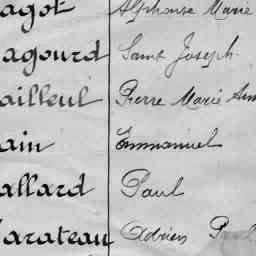 agot Alphonse Marie
agourd Saint Joseph
ailleul Pierre Marie
ain Emmanuel
allard Paul
arateau Adrien Paul